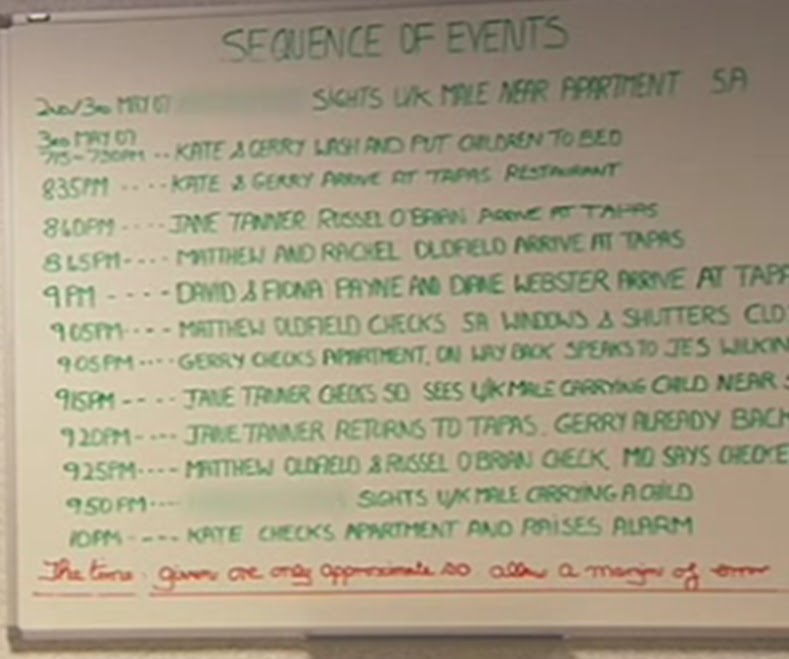 SEQUENCE OF EVENTS
2ND/3RD MAY 07 SIGHTS U/K MALE NEAR APARTMENT 5A
3RD MAY 07
715-730PM -- KATE & GERRY WASH AND PUT CHILDREN TO BED
835PM ---- KATE & GERRY ARRIVE AT TAPAS RESTAURANT
840PM ---- JANE TANNER RUSSEL O'BRIAN ARRIVE AT TAPAS
845PM ---- MATTHEW AND RACHEL OLDFIELD ARRIVE AT TAPAS
9PM ----- DAVID & FIONA PAYNE AND DIANE WEBSTER ARRIVE AT TAPA
905PM ---- MATTHEW OLDFIELD CHECKS 5A WINDOWS & SHUTTERS CLO
905PM ---- GERRY CHECKS APARTMENT, ON WAY BACK SPEAKS TO JES WILKIN
915PM ---- JANE TANNER CHECKS 5D SEES U/K MALE CARRYING CHILD NEAR 5
920PM ---- JANE TANNER RETURNS TO TAPAS. GERRY ALREADY BACK
925PM ---- MATTHEW OLDFIELD & RUSSEL O'BRIAN CHECK, MO SAYS CHECKE
950PM --- SIGHTS U/K MALE CARRYING A CHILD
10PM ---- KATE CHECKS APARTMENT AND RAISES ALARM
The time given are only approximate so allow a margin of error